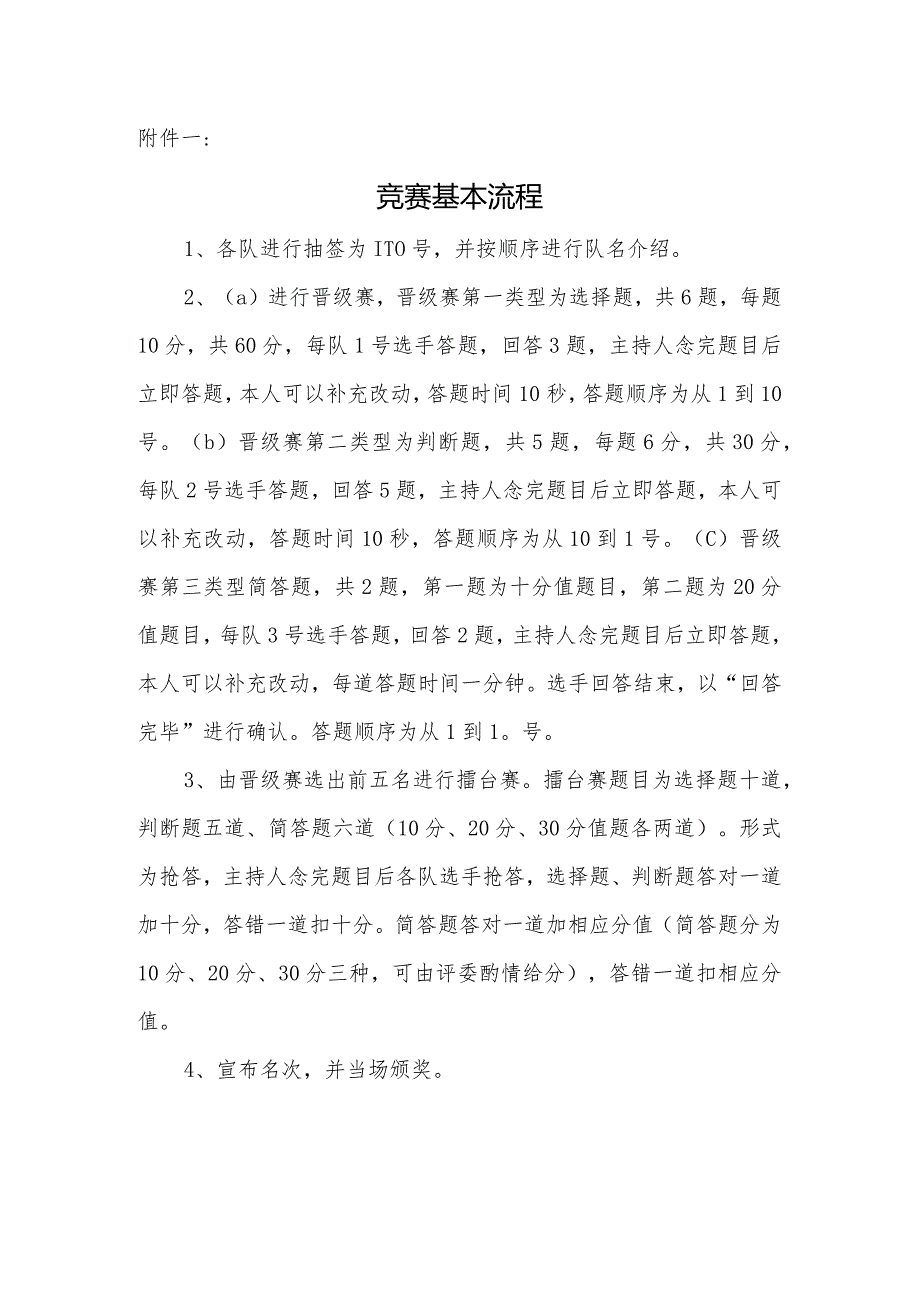 附件一:
竞赛基本流程
1、各队进行抽签为ITO号，并按顺序进行队名介绍。
2、（a）进行晋级赛，晋级赛第一类型为选择题，共6题，每题
10分，共60分，每队1号选手答题，回答3题，主持人念完题目后
立即答题，本人可以补充改动，答题时间10秒，答题顺序为从1到10
号。（b）晋级赛第二类型为判断题，共5题，每题6分，共30分，
每队2号选手答题，回答5题，主持人念完题目后立即答题，本人可
以补充改动，答题时间10秒，答题顺序为从10到1号。（C）晋级
赛第三类型简答题，共2题，第一题为十分值题目，第二题为20分
值题目，每队3号选手答题，回答2题，主持人念完题目后立即答题，
本人可以补充改动，每道答题时间一分钟。选手回答结束，以“回答
完毕”进行确认。答题顺序为从1到1。号。
3、由晋级赛选出前五名进行擂台赛。擂台赛题目为选择题十道，
判断题五道、简答题六道（10分、20分、30分值题各两道）。形式
为抢答，主持人念完题目后各队选手抢答，选择题、判断题答对一道
加十分，答错一道扣十分。简答题答对一道加相应分值（简答题分为
10分、20分、30分三种，可由评委酌情给分），答错一道扣相应分
值。
4、宣布名次，并当场颁奖。